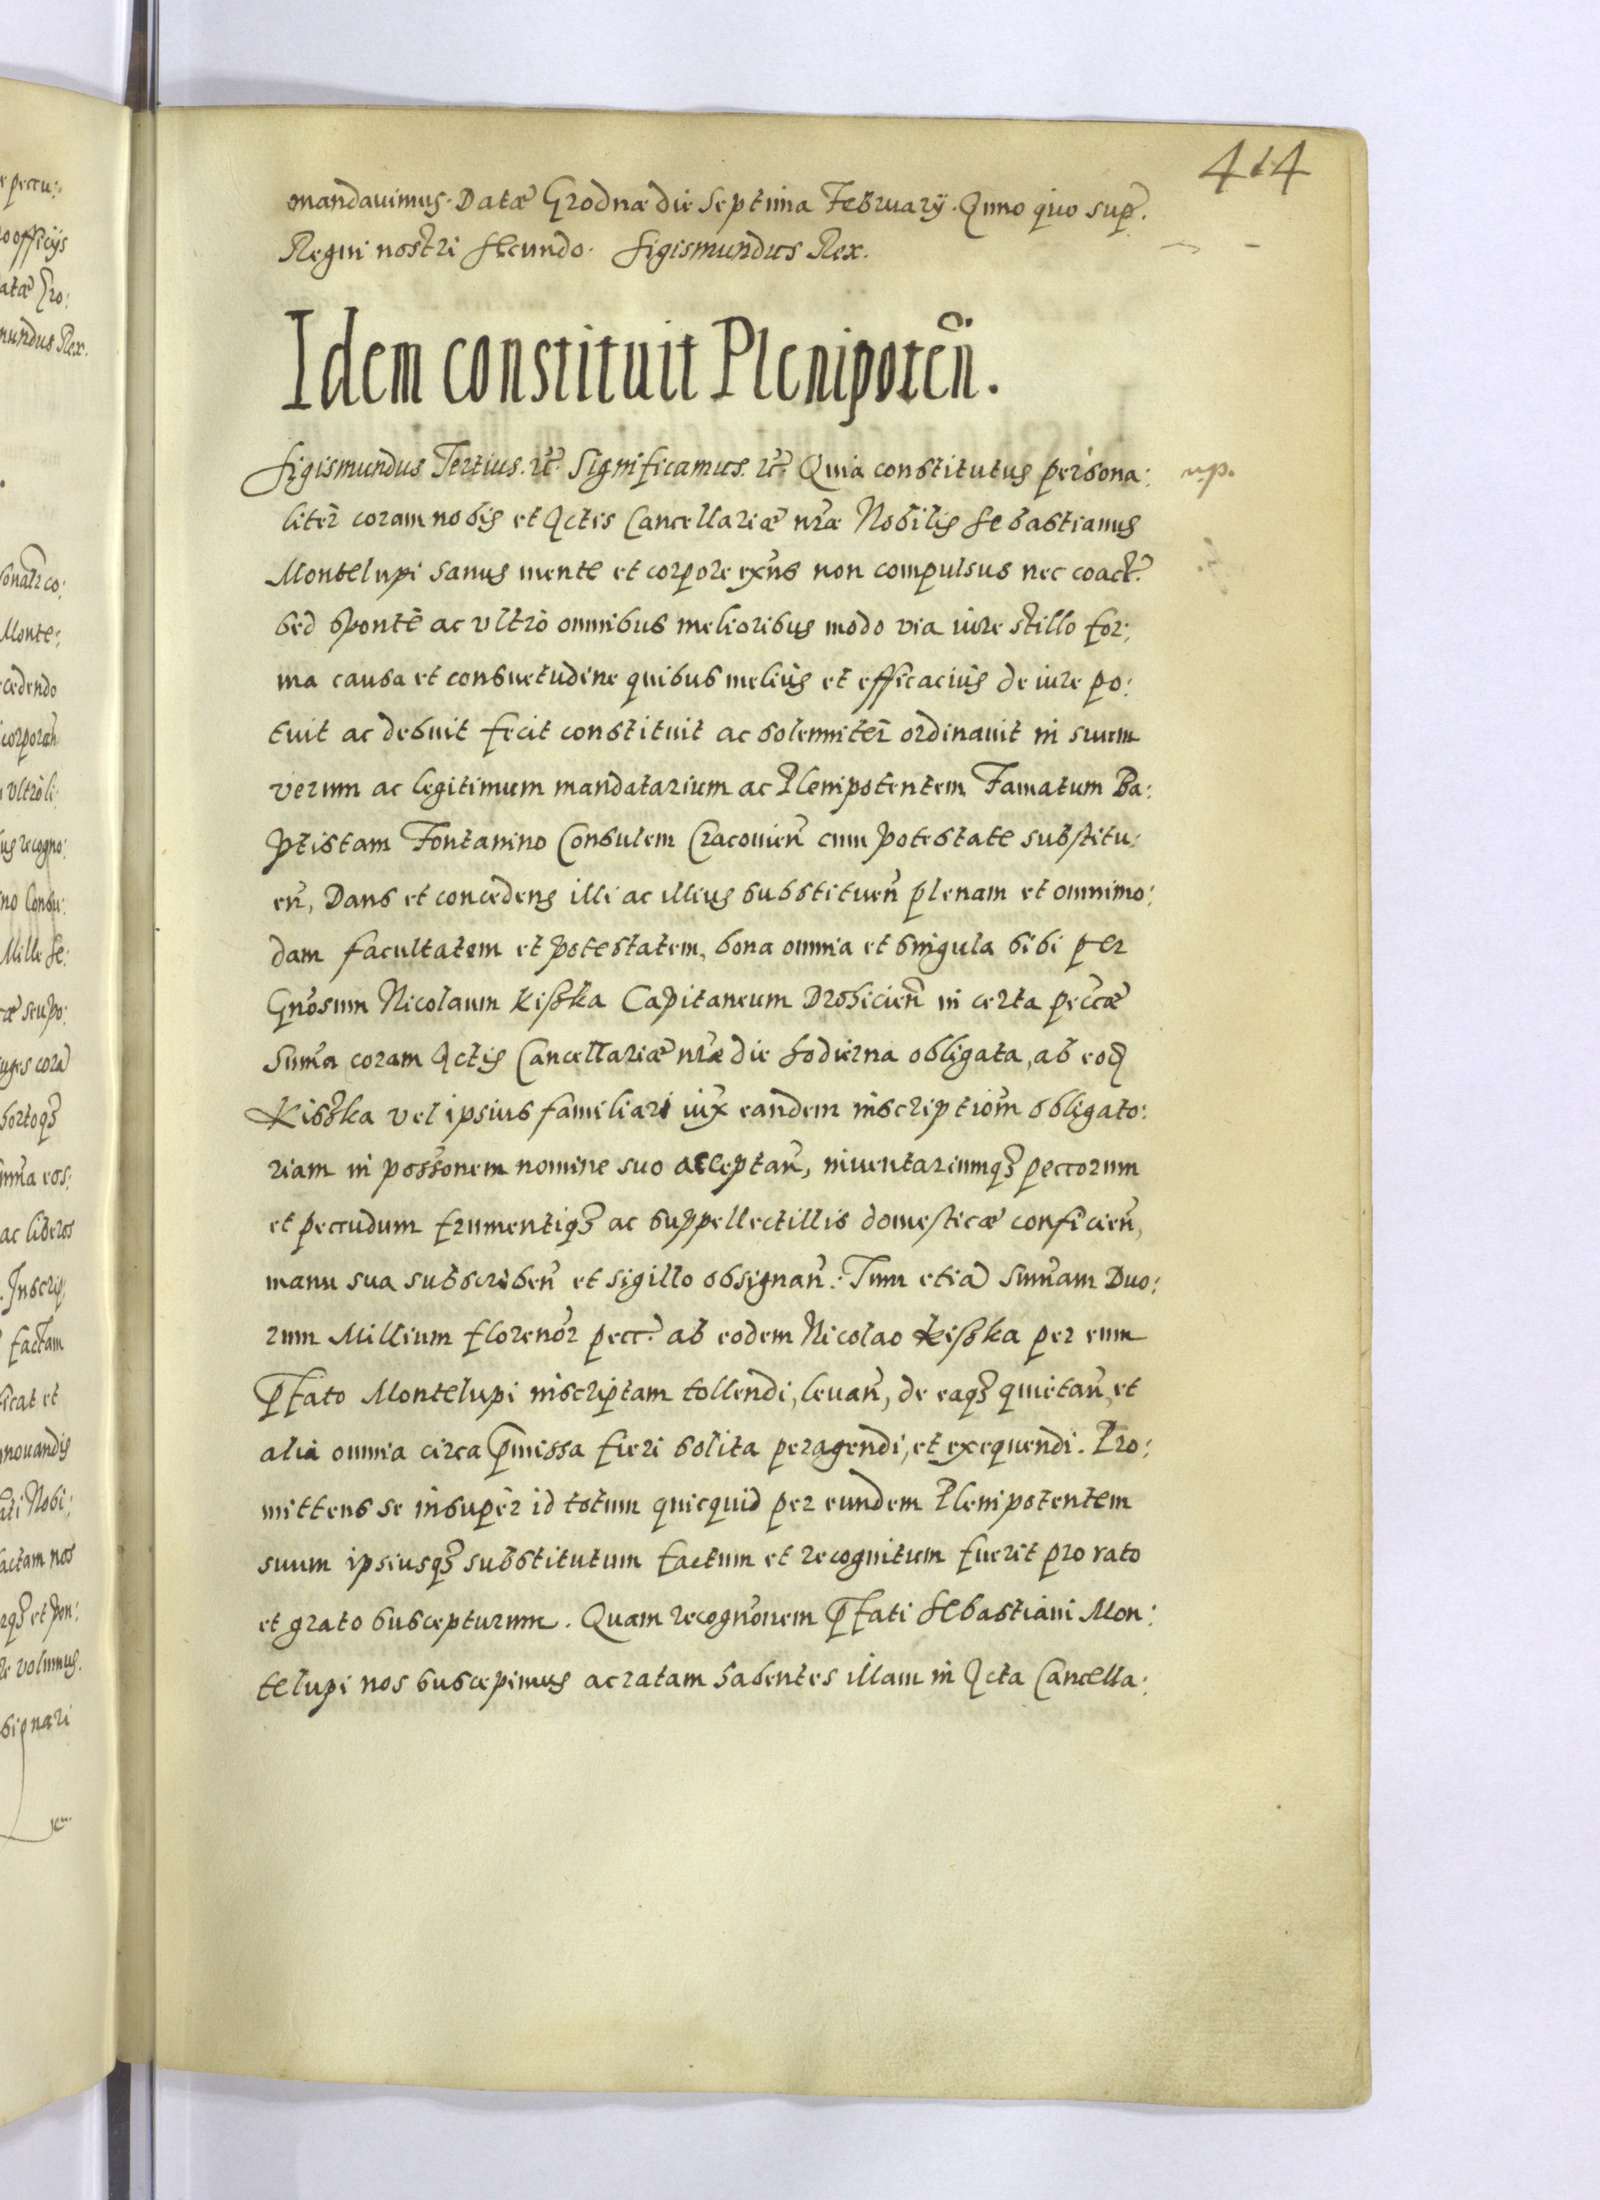 414
mandauimus. Datæ Grodnæ die Septima February. Anno quo sup̃.
Regni nostri secundo. Sigismundus Rex.
Idem constituit Plenipoteñ.
Sigismundus Tertius. etc̃. Significamus. etc̃. Quia constitutus persona:
liter coram nobis et Actis Cancellariæ nr̃æ Nobilis Sebastianus
Montelupi sanus mente et corpore exñs non compulsus nec coact.
sed sponte ac vltrò omnibus melioribus modo via iure stillo for:
ma causa et consuetudine quibus meliùs et efficaciùs de iure po:
tuit ac debuit fecit constituit ac solemniter ordinauit in suum
verum ac legitimum mandatarium ac Plenipotentem Famatum Ba:
ptistam Fontanino Consulem Cracouieñ cum potestate substitu:
eñ, Dans et concedens illi ac illius substitueñ plenam et omnimo:
dam facultatem et potestatem, bona omnia et singula sibi per
Gnõsum Nicolaum Kiszka Capitaneum Drohicieñ in certa pec̃cæ
Sum̃a coram Actis Cancellariæ nr̃æ die hodierna obligata, ab eod
Kiszka vel ipsius familiari iux̃ eandem inscriptiom̃ obligato:
riam in posšonem nomine suo acceptañ, inuentariumqȝ peccorum
et peccudum frumentiqȝ ac suppellectillis domesticæ conficieñ,
manu sua subscribeñ et sigillo obsignañ. Tum etiã Sum̃am Duo:
rum Millium florenor̃ pecc. ab eodem Nicolao Kiszka per eum
p̃fato Montelupi inscriptam tollendi, leuañ, de eaqȝ quietañ, et
alia omnia circa p̃missa fieri solita peragendi, et exequendi. Pro:
mittens se insuper id totum quicquid per eundem Plenipotentem
suum ipsiusqȝ substitutum factum et recognitum fuerit pro rato
et grato suscepturum. Quam recognõnem p̃fati Sebastiani Mon:
telupi nos suscepimus ac ratam habentes illam in Acta Cancella: